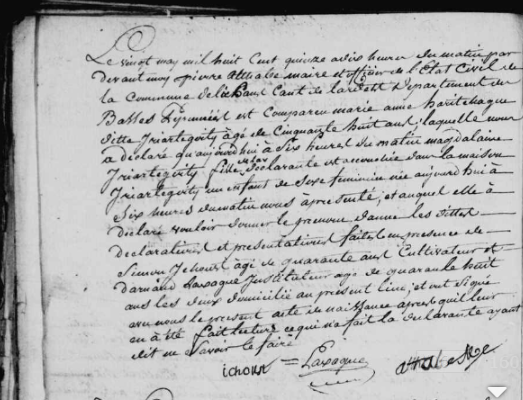 Le vingt may mil huit Cent quinze a dix heures du matin par
devant moy pierre Atthabe maire et officier de l'Etat Civil de
la Commune de lichans Cant. de tardets Departement des
Basses Pyrenneés est Comparue marie anne harichague
ditte Iriartegoity agé de Cinquante huit ans, laquelle nous
a declaré qu'aujourdhui à Six heures du matin magdalaine
Iriartegoity fille de la Declarante est accouchée dans la maison
Iriartegoity un enfant de Sexe feminin née aujourdhui à
Six heures du matin nous a presenté, et auquel elle à
declaré vouloir donner le prenom d'anne les dittes
declaratures et presentatures faites en presence de
Simon Ichourx agé de quarante ans Cultivateur et
darnaud Lavaque Instituteur agé de quarante huit
ans les deux domicilié au present lieu, et ont signé
avec nous le present acte de naissance apres qu'il leur
en à été fait lecture ce que n'a fait la declarante ayant
dit ne Savoir le faire
ichourx = Lavaque atthabe